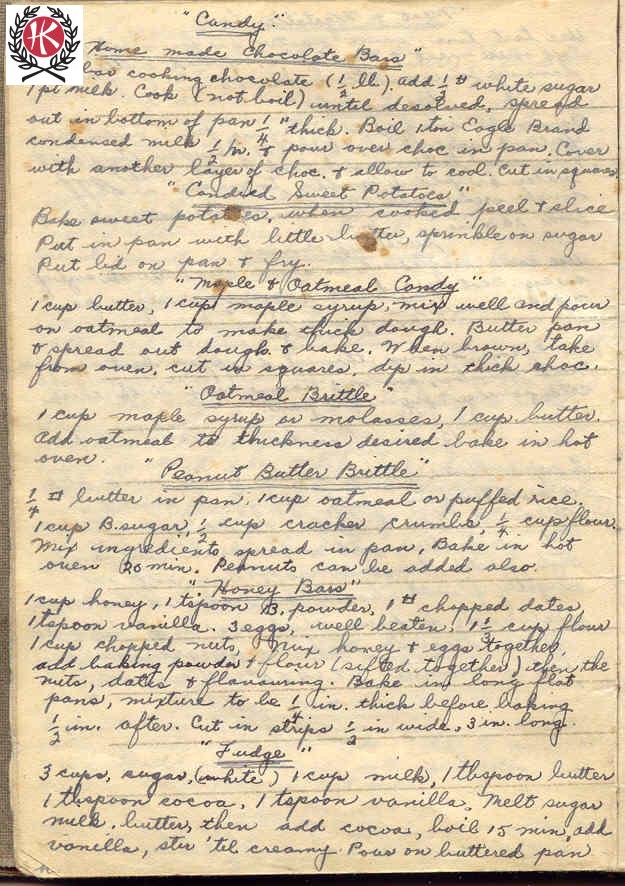 "Candy."
K
Home made Chocolate Bars"
cooking chocolate (1/2 lb.). add 1/2 # white sugar
1 pt milk. Cook (not boil) until desolved, spread
out in bottom of pan 1/4" thick. Boil 1 tin Eagle Brand
condensed milk 1/2 hr. & pour over choc in pan. Cover
with another layer of choc. & allow to cool. Cut in squares.
"Candied Sweet Potatoes"
Bake sweet potatoes, when cooked peel & slice
Put in pan with little butter, sprinkle on sugar
Put lid on pan & fry.
"Maple & Oatmeal Candy"
1 cup butter, 1 cup maple syrup, mix well and pour
on oatmeal to make thick dough. Butter pan
& spread out dough & bake. When brown, take
from oven, cut in squares, dip in thick choc.
"Oatmeal Brittle"
1 cup maple syrup or molasses, 1 cup butter.
Add oatmeal to thickness desired bake in hot
oven.
"Peanut Butter Brittle"
1/4 # butter in pan, 1 cup oatmeal or puffed rice.
1 cup B. sugar, 1/2 cup cracker crumbs, 1/4 cup flour.
Mix ingredients, spread in pan, Bake in hot
oven 20 min. Peanuts can be added also.
"Honey Bars"
1 cup honey, 1 tspoon B. powder, 1 # chopped dates,
1 tspoon vanilla. 3 eggs, well beaten, 1 1/3 cup flour
1 cup chopped nuts, Mix honey & eggs together,
add baking powder & flour (sifted together) then the
nuts, dates & flavouring. Bake in long flat
pans, mixture to be 1/4 in. thick before baking
1/2 in. after. Cut in strips 1/2 in wide, 3 in. long.
"Fudge"
3 cups, sugar, (white) 1 cup milk, 1 tbspoon butter
1 tbspoon cocoa, 1 tspoon vanilla. Melt sugar
milk, butter, then add cocoa, boil 15 min, add
vanilla, stir 'til creamy. Pour on buttered pan